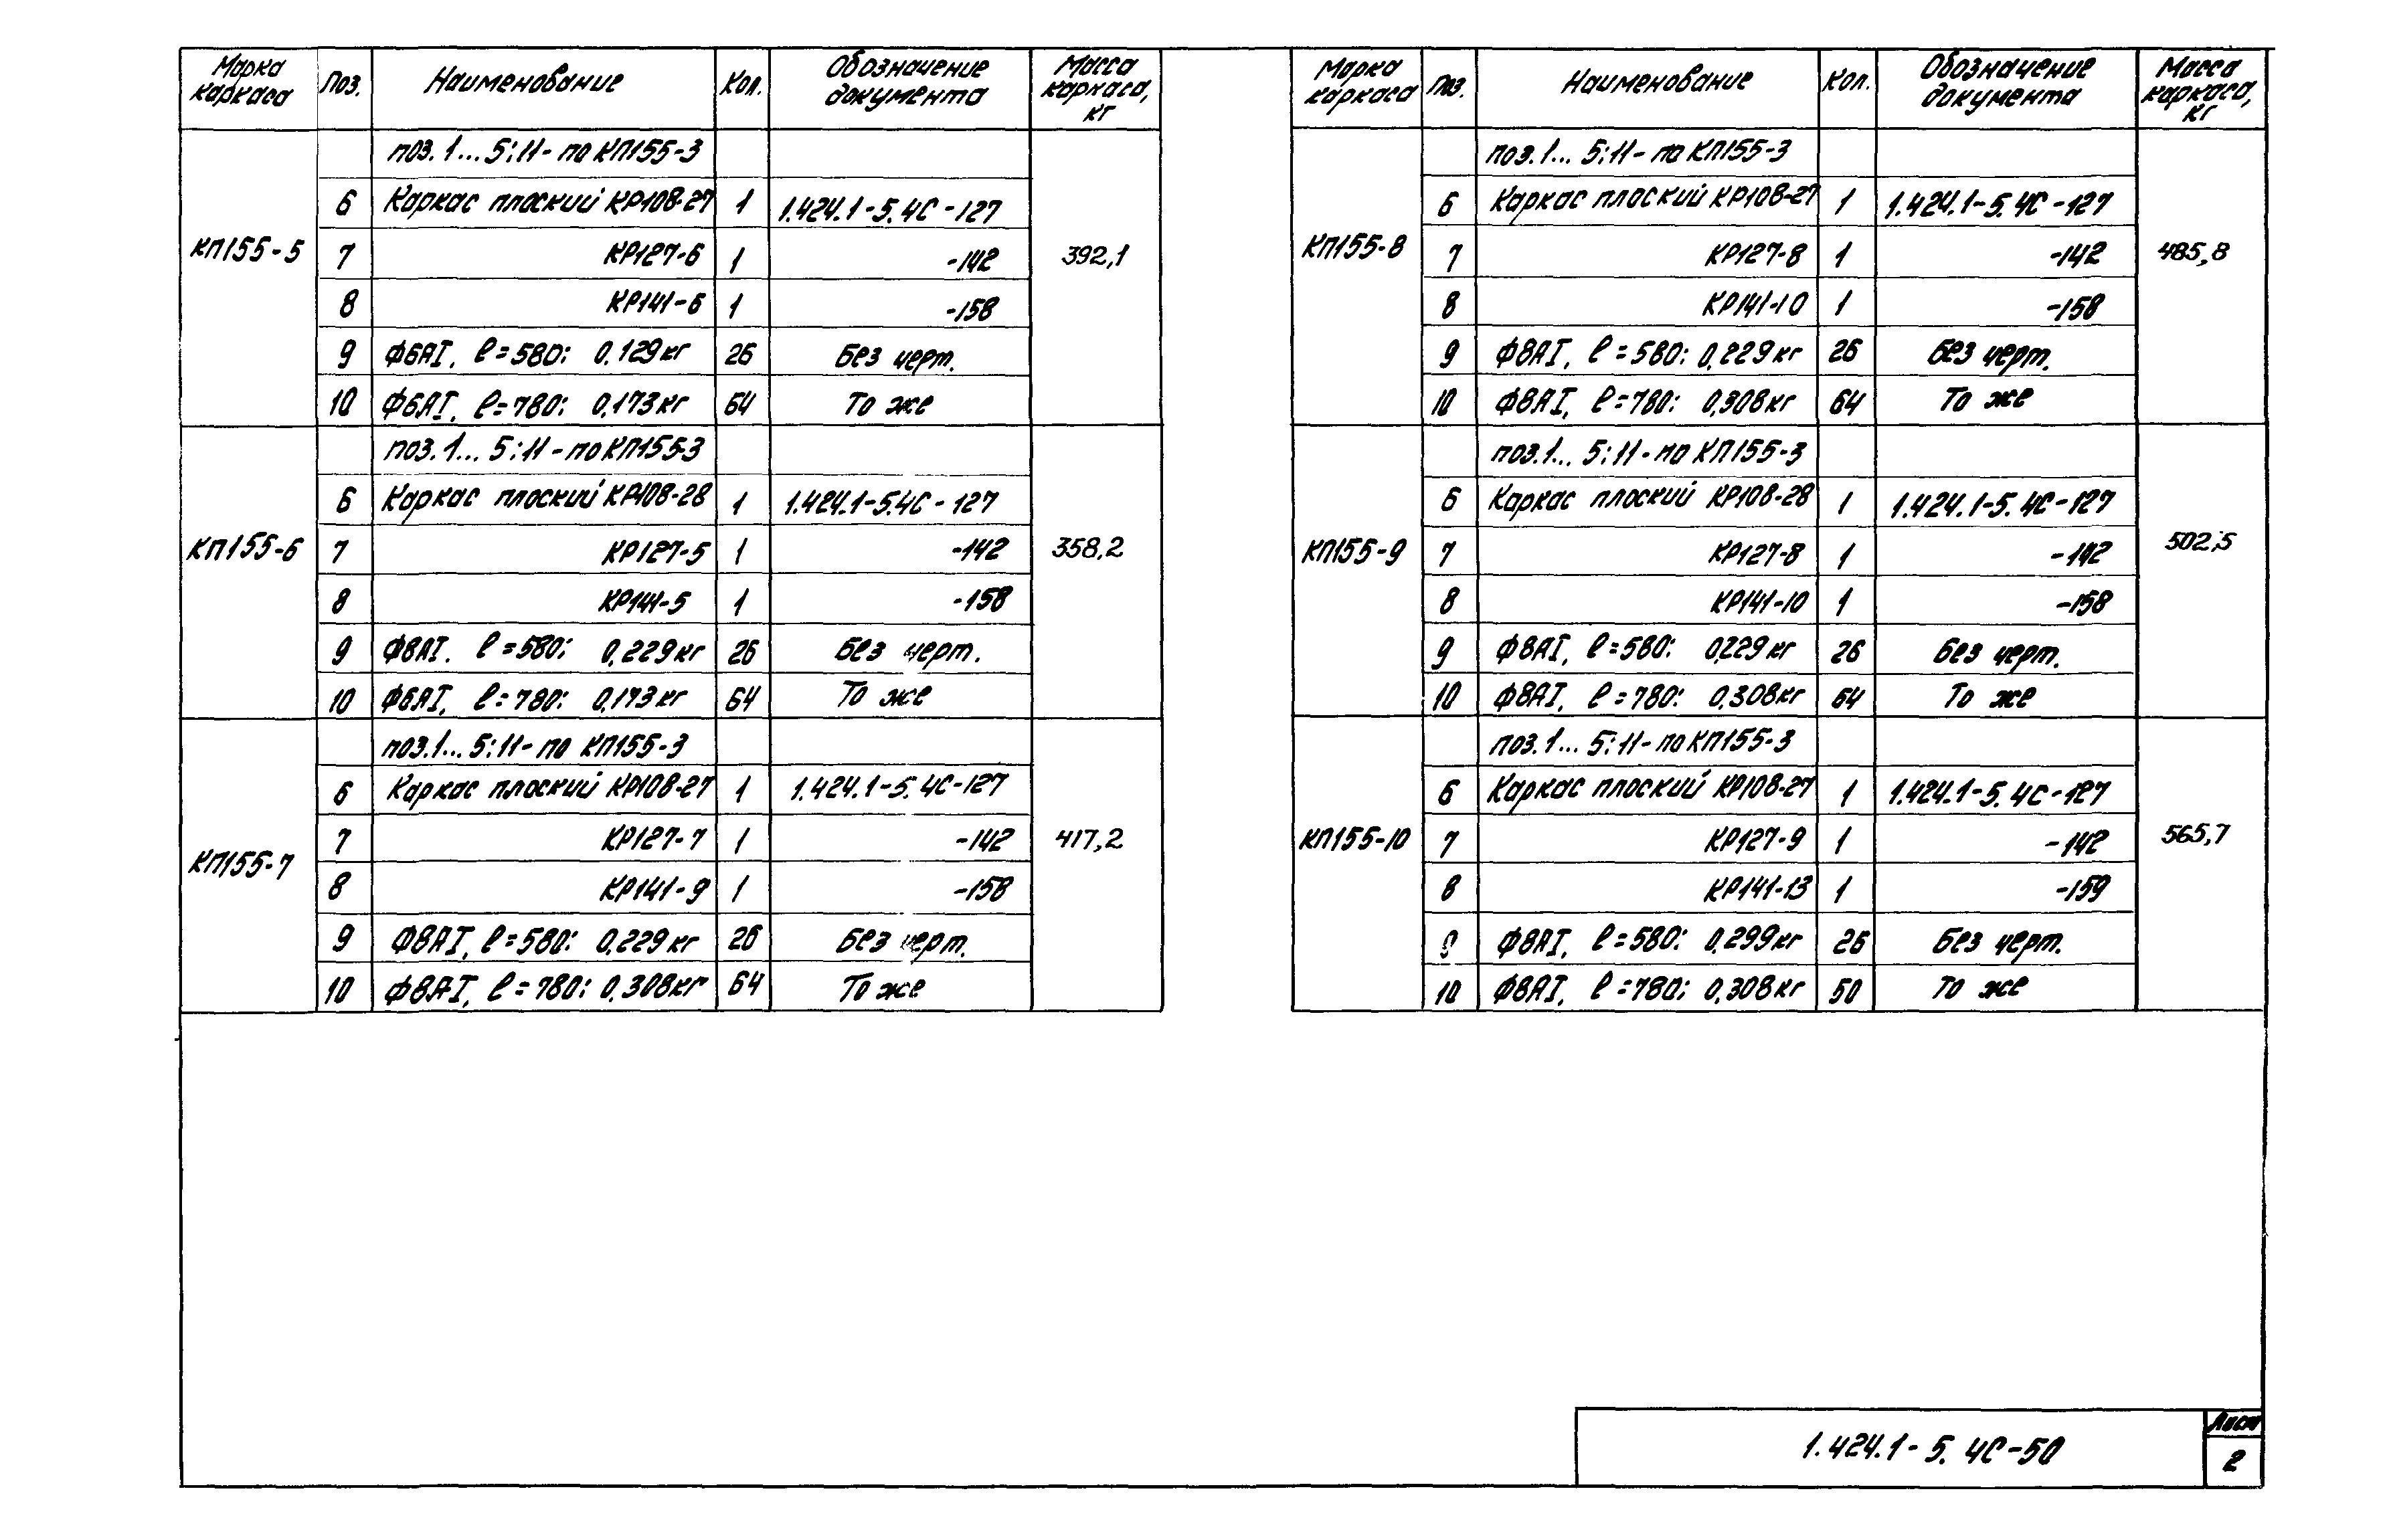 Марка каркаса Поз. Наименование Кол. Обозначение документа Масса каркаса, кг
поз. 1... 5; 11 - по КП155-3
6 Каркас плоский КР108-27 1 1.424.1-5.4С-127
КП155-5 7 КР127-6 1 -142 392,1
8 КР141-6 1 -158
9 Ф6АI, ℓ=580; 0,129кг 26 Без черт.
10 Ф6АI, ℓ=780; 0,173кг 64 То же
поз. 1... 5; 11 - по КП155-3
6 Каркас плоский КР108-28 1 1.424.1-5.4С-127
КП155-6 7 КР127-5 1 -142 358,2
8 КР141-5 1 -158
9 Ф8АI. ℓ=580; 0,229кг 26 Без черт.
10 Ф6АI, ℓ=780; 0,173кг 64 То же
поз. 1... 5; 11 - по КП155-3
6 Каркас плоский КР108-27 1 1.424.1-5.4С-127
КП155-7 7 КР127-7 1 -142 417,2
8 КР141-9 1 -158
9 Ф8АI, ℓ=580; 0,229кг 26 Без черт.
10 Ф8АI, ℓ=780; 0,308кг 64 То же
Марка каркаса Поз. Наименование Кол. Обозначение документа Масса каркаса, кг
поз. 1... 5; 11 - по КП155-3
6 Каркас плоский КР108-27 1 1.424.1-5.4С-127
КП155-8 7 КР127-8 1 -142 485,8
8 КР141-10 1 -158
9 Ф8АI, ℓ=580; 0,229кг 26 Без черт.
10 Ф8АI, ℓ=780; 0,308кг 64 То же
поз. 1... 5; 11 - по КП155-3
6 Каркас плоский КР108-28 1 1.424.1-5.4С-127
КП155-9 7 КР127-8 1 -142 502,5
8 КР141-10 1 -158
9 Ф8АI, ℓ=580; 0,229кг 26 Без черт.
10 Ф8АI, ℓ=780; 0,308кг 64 То же
поз. 1... 5; 11 - по КП155-3
6 Каркас плоский КР108-27 1 1.424.1-5.4С-127
КП155-10 7 КР127-9 1 -142 565,7
8 КР141-13 1 -159
9 Ф8АI, ℓ=580; 0,299кг 26 Без черт.
10 Ф8АI, ℓ=780; 0,308кг 50 То же
1.424.1-5.4С-50
Лист
2